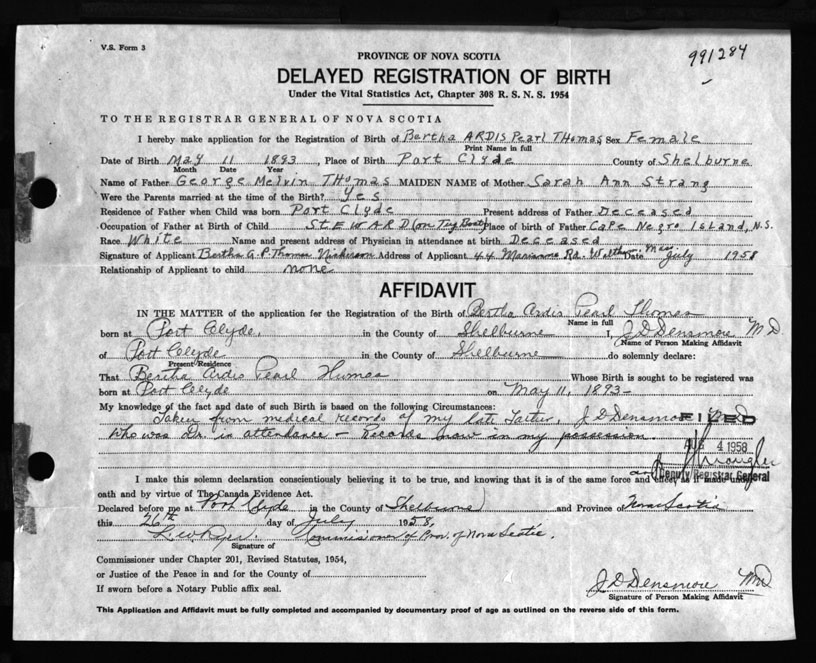 V.S. Form 3
991284
PROVINCE OF NOVA SCOTIA
DELAYED REGISTRATION OF BIRTH
Under the Vital Statistics Act, Chapter 308 R. S. N. S. 1954
TO THE REGISTRAR GENERAL OF NOVA SCOTIA
I hereby make application for the Registration of Birth of Bertha ARDIS Pearl THomas Sex Female
Print Name in full
Date of Birth May 11 1893, Place of Birth Port Clyde County of Shelburne
Month Date Year
Name of Father George Melvin THomas MAIDEN NAME of Mother Sarah Ann Strang
Were the Parents married at the time of the Birth? Yes
Residence of Father when Child was born Port Clyde Present address of Father Deceased
Occupation of Father at Birth of Child STEWARD (on Tug Boat) Place of birth of Father Cape Negro Island, N.S.
Race White Name and present address of Physician in attendance at birth Deceased
Signature of Applicant Bertha A. P. Thomas Nickerson Address of Applicant 44 Rd. Mass. Date July 1958
Relationship of Applicant to child none
AFFIDAVIT
IN THE MATTER of the application for the Registration of the Birth of Bertha Ardis Pearl Thomas
Name in full
born at Port Clyde in the County of Shelburne I, J D Densmore MD
(Name of Person Making Affidavit
of Port Clyde in the County of Shelburne do solemnly declare:
Present Residence
That Bertha Ardis Pearl Whose Birth is sought to be registered was
born at Port Clyde on May 11, 1893-
My knowledge of the fact and date of such Birth is based on the following Circumstances:
Taken from medical records of my late Father, J D Densmore
FILED
Who was Dr. in attendance - Records now in my possession.
AUG 4 1958
Deputy Registrar General
I make this solemn declaration conscientiously believing it to be true, and knowing that it is of the same force and effect as if made under
oath and by virtue of The Canada Evidence Act.
Declared before me at Port Clyde in the County of Shelburne and Province of Nova Scotia
this 26th day of July 1958,
Commissioner of Prov. of Nova Scotia.
Signature of
Commissioner under Chapter 201, Revised Statutes, 1954,
or Justice of the Peace in and for the County of
If sworn before a Notary Public affix seal.
J D Densmore MD
Signature of Person Making Affidavit
This Application and Affidavit must be fully completed and accompanied by documentary proof of age as outlined on the reverse side of this form.